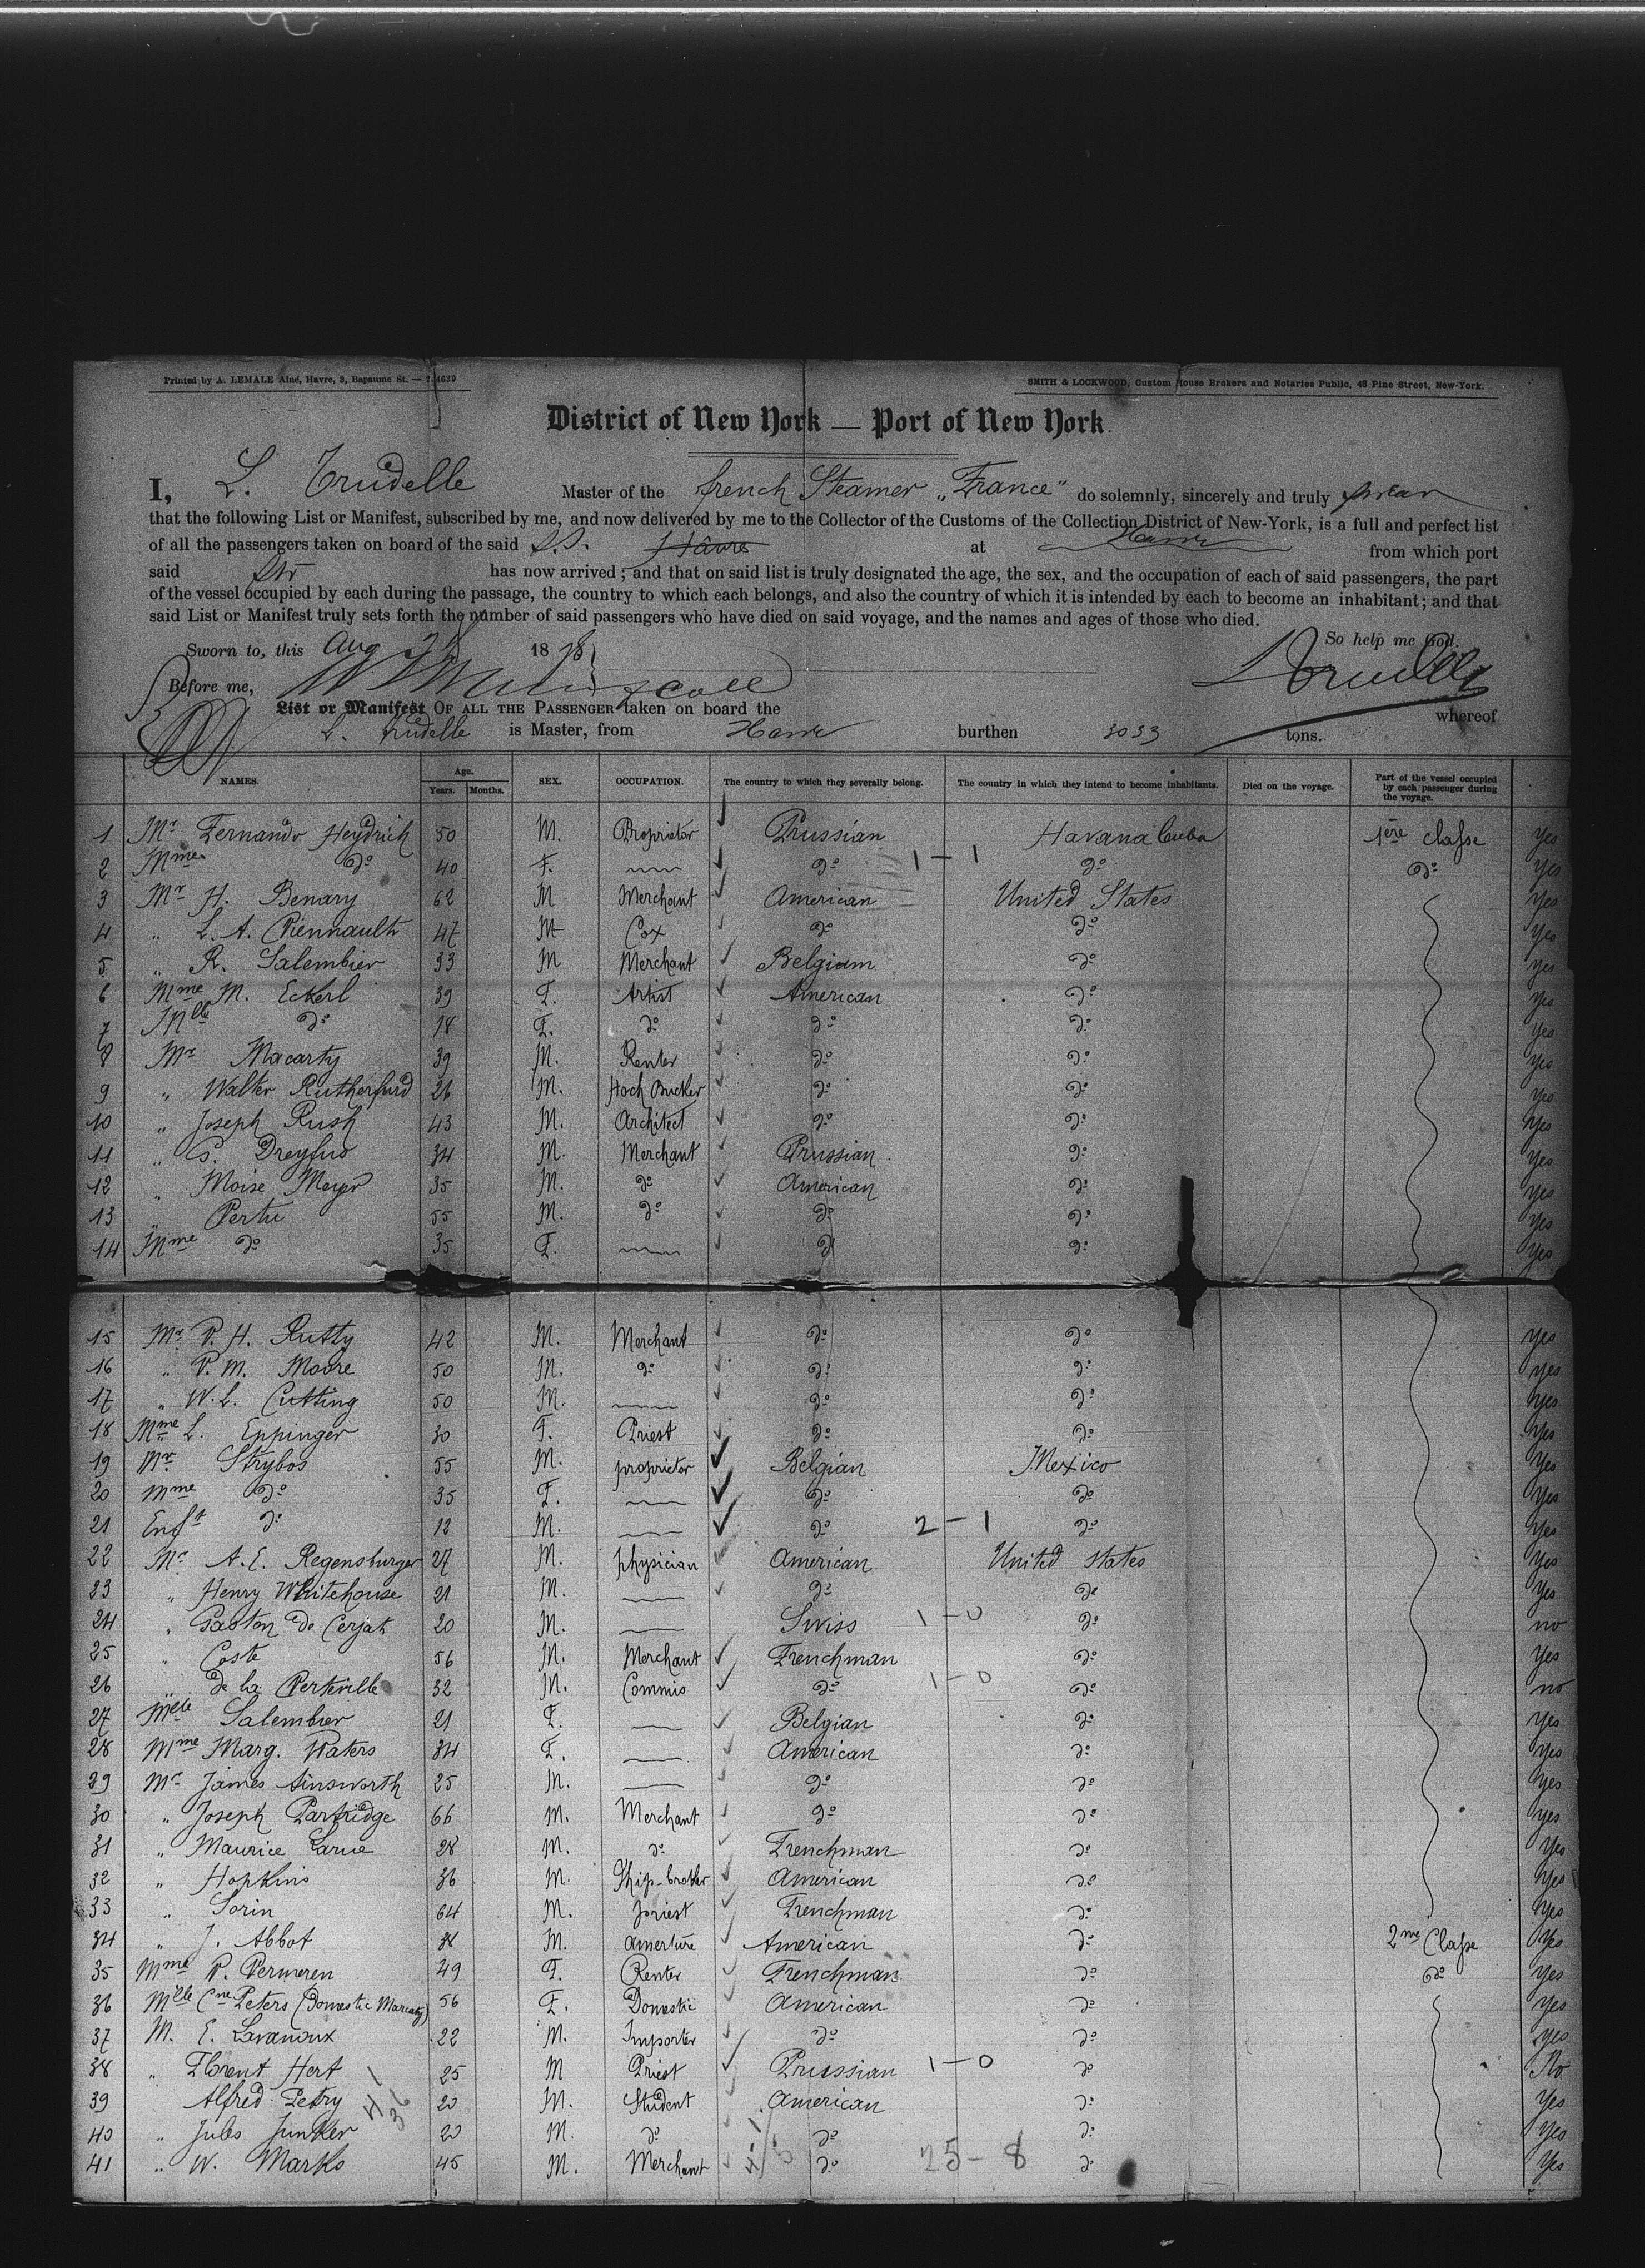 Printed by A. LEMALE Aîné, Havre, 3, Bapaume St. — 7.4639
SMITH & LOCKWOOD, Custom House Brokers and Notaries Public, 48 Pine Street, New-York.
District of New York — Port of New York.
I, L. Trudelle Master of the french Steamer „France" do solemnly, sincerely and truly swear
that the following List or Manifest, subscribed by me, and now delivered by me to the Collector of the Customs of the Collection District of New-York, is a full and perfect list
of all the passengers taken on board of the said S.S. Hâvre at Havre from which port
said Str has now arrived; and that on said list is truly designated the age, the sex, and the occupation of each of said passengers, the part
of the vessel occupied by each during the passage, the country to which each belongs, and also the country of which it is intended by each to become an inhabitant; and that
said List or Manifest truly sets forth the number of said passengers who have died on said voyage, and the names and ages of those who died.
So help me God.
Sworn to, this Aug 1878
Before me,
L Trudelle
List or Manifest OF ALL THE PASSENGER taken on board the whereof
L. Trudelle is Master, from Havre burthen 3033 tons.
NAMES. Age. Years. Months. SEX. OCCUPATION. The country to which they severally belong. The country in which they intend to become inhabitants. Died on the voyage. Part of the vessel occupied by each passenger during the voyage.
1 Mr Fernando Heydrich 50 M. Proprietor Prussian Havana Cuba 1ère classe Yes
2 Mme do 40 F. do 1-1 do do Yes
3 Mr H. Benary 62 M Merchant American United States Yes
4 „ L. A. Riennault 47 M Cox do do Yes
5 „ R. Salembier 33 M Merchant Belgium do Yes
6 Mme M. Eckerl 39 F. Artist American do Yes
7 Mlle do 18 F. do do do Yes
8 Mr Macarty 39 M. Renter do do Yes
9 „ Walter Rutherfurd 26 M. do do Yes
10 „ Joseph Rush 43 M. Architect do do Yes
11 „ S. Dreyfus 34 M. Merchant Prussian do Yes
12 „ Moise Meyer 35 M. do American do Yes
13 „ Pertu 55 M. do do do Yes
14 Mme do 35 F. do do Yes
15 Mr P. H. Rutty 42 M. Merchant do do Yes
16 „ P. M. Moore 50 M. do do do Yes
17 „ W. L. Cutting 50 M. do do Yes
18 Mme L. Eppinger 30 F. Priest do do Yes
19 Mr Strybos 55 M. proprietor Belgian Mexico Yes
20 Mme do 35 F. do do Yes
21 Enft do 12 M. do 2-1 do Yes
22 Mr A. E. Regensburger 27 M. physician American United states Yes
23 „ Henry Whitehouse 21 M. do do Yes
24 „ Gaston de Cerjat 20 M. Swiss 1-0 do no
25 „ Coste 56 M. Merchant Frenchman do Yes
26 „ de la Perteville 32 M. Commis do 1-0 do no
27 Melle Salembier 21 F. Belgian do Yes
28 Mme Marg. Waters 34 F. American do Yes
29 Mr James Ainsworth 25 M. do do Yes
30 „ Joseph Partridge 66 M. Merchant do do Yes
31 „ Maurice Larue 28 M. do Frenchman do Yes
32 „ Hopkins 36 M. Ship-broker American do Yes
33 „ Sorin 64 M. priest Frenchman do Yes
34 „ J. Abbot M. American do 2me Classe Yes
35 Mme P. Permeren 49 F. Renter Frenchman do do Yes
36 Mlle Cne Peters (Domestic Macarty) 56 F. Domestic American do Yes
37 M. E. Lavanoux 22 M. Importer do do Yes
38 „ Florent Hert 25 M Priest Prussian 1-0 do No
39 Alfred Petry 20 M. Student American do Yes
40 „ Jules Junker 20 M. do do do Yes
41 „ W. Marks 45 M. Merchant do 25-8 do Yes
41
36